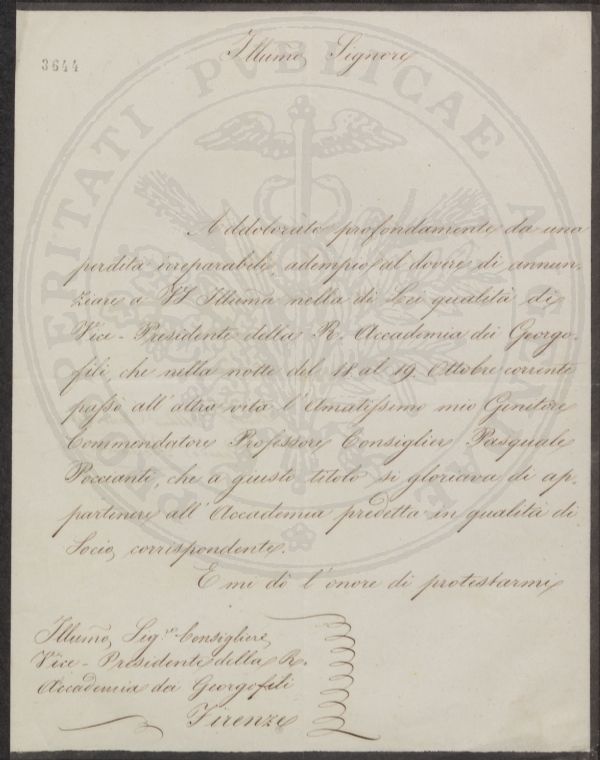 3644
Illumo Signore
Addolorato profondamente da una
perdita irreparabile, adempio al dovere di annun-
ziare a VS Illuma nella di Lei qualità di
Vice-Presidente della R. Accademia dei Georgo-
fili, che nella notte del 18 al 19 Ottobre corrente
passò all'altra vita l'Amatissimo mio Genitore
Commendatore Professore Consiglier Pasquale
Poccianti, che a giusto titolo si gloriava di ap-
partenere all'Accademia predetta in qualità di
Socio corrispondente.
E mi dò l'onore di protestarmi
Illumo Sigre Consigliere
Vice-Presidente della R.
Accademia dei Georgofili
Firenze
PROSPERITATI PUBLICAE AUGENDAE